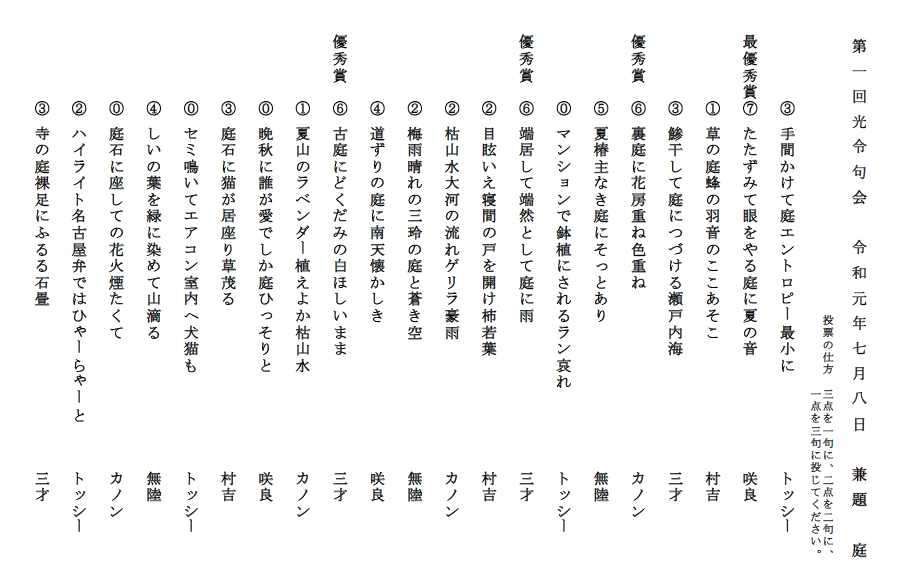 第一回光令句会　令和元年七月八日　兼題　庭
投票の仕方　三点を一句に、二点を二句に、
一点を三句に投じてください。
③ 手間かけて庭エントロピー最小に　トッシー
最優秀賞 ⑦ たたずみて眼をやる庭に夏の音　咲良
① 草の庭蜂の羽音のここあそこ　村吉
③ 鯵干して庭につづける瀬戸内海　三才
優秀賞 ⑥ 裏庭に花房重ね色重ね　カノン
⑤ 夏椿主なき庭にそっとあり　無陸
⓪ マンションで鉢植にされるラン哀れ　トッシー
優秀賞 ⑥ 端居して端然として庭に雨　三才
② 目眩いえ寝間の戸を開け柿若葉　村吉
② 枯山水大河の流れゲリラ豪雨　カノン
② 梅雨晴れの三玲の庭と蒼き空　無陸
④ 道ずりの庭に南天懐かしき　咲良
優秀賞 ⑥ 古庭にどくだみの白ほしいまま　三才
① 夏山のラベンダー植えよか枯山水　カノン
⓪ 晩秋に誰が愛でしか庭ひっそりと　咲良
③ 庭石に猫が居座り草茂る　村吉
⓪ セミ鳴いてエアコン室内へ犬猫も　トッシー
④ しいの葉を緑に染めて山滴る　無陸
⓪ 庭石に座しての花火煙たくて　カノン
② ハイライト名古屋弁ではひゃーらゃーと　トッシー
③ 寺の庭裸足にふるる石畳　三才